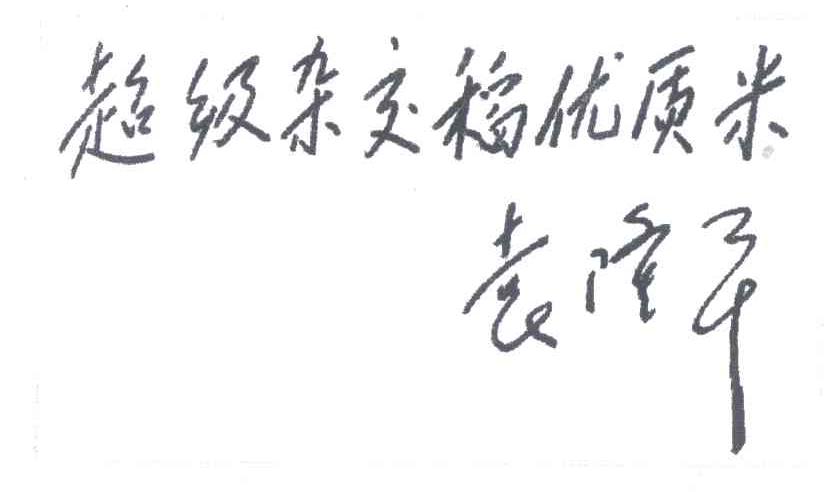 超级杂交稻优质米
袁隆平